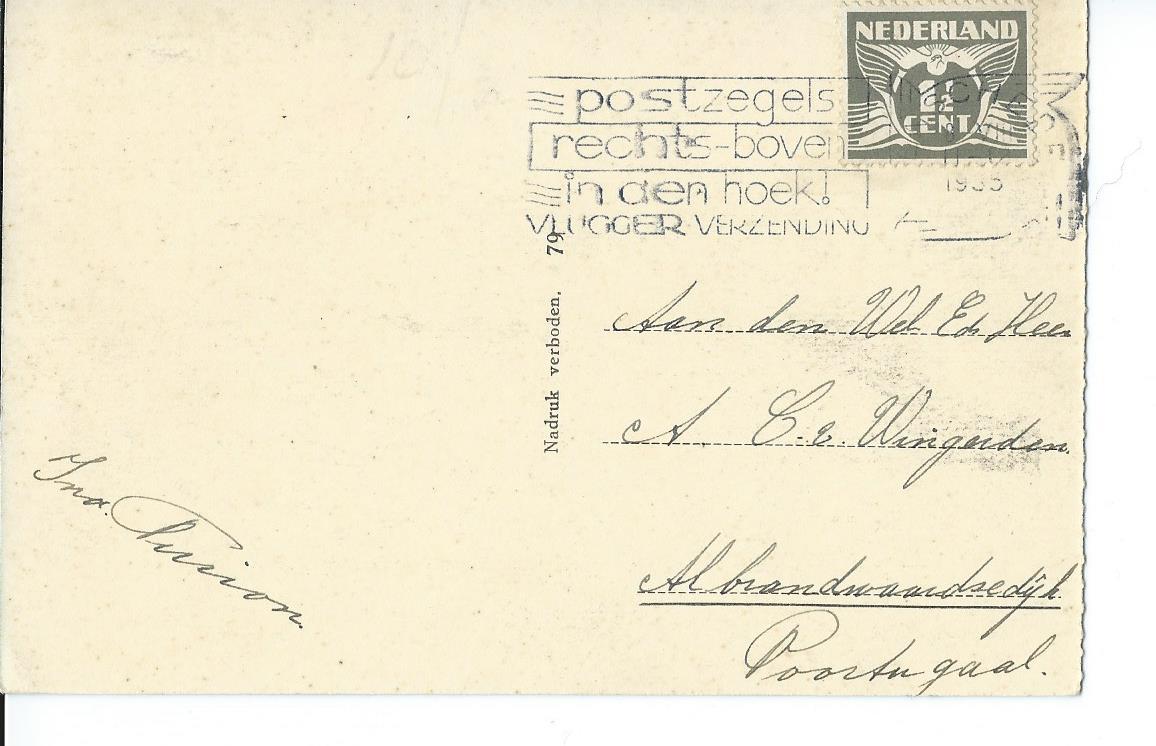 NEDERLAND
1½
CENT
postzegels
rechts-boven
in den hoek!
VLUGGER VERZENDING
1935
Nadruk verboden. 79
Aan den Wel Ed. Heer
A. C. v. Wingerden.
Albrandwaardsedijk
Poortugaal.